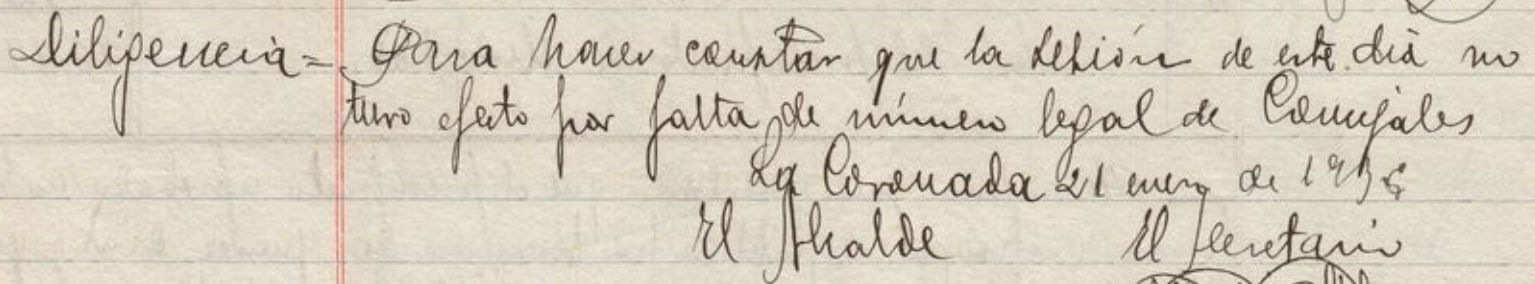 Diligencia = Para hacer constar que la sesión de este dia no
tuvo efecto por falta de número legal de Concejales
La Coronada 21 enero de
El Alcalde El Secretario